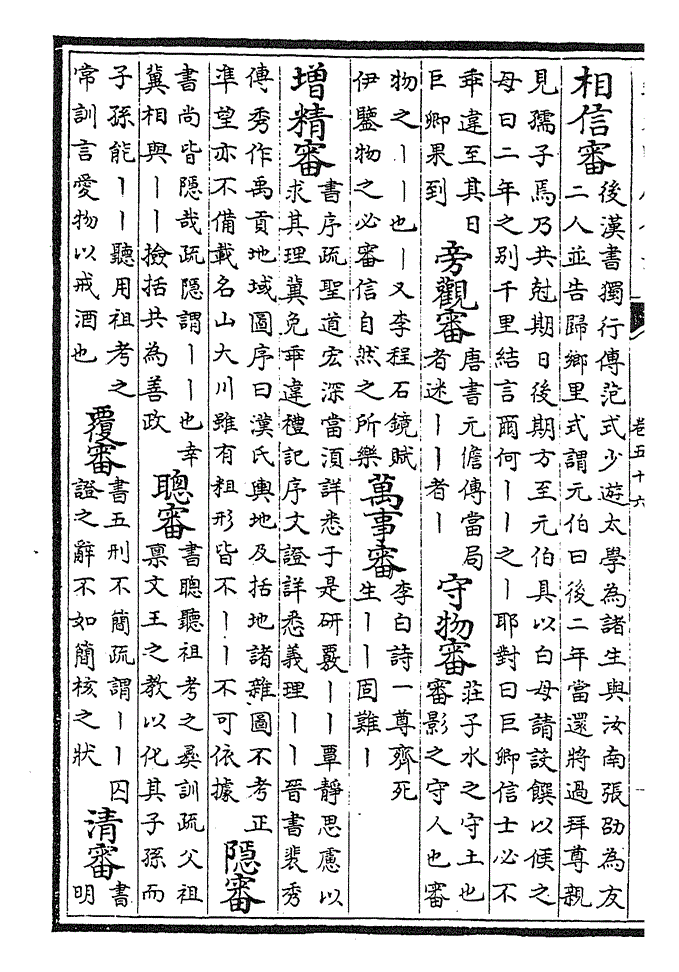 卷五十六
相信審
後漢書獨行傳范式少遊太學為諸生與汝南張劭為友
二人並告歸鄉里式謂元伯曰後二年當還將過拜尊親
見孺子焉乃共尅期日後期方至元伯具以白母請設饌以候之
母曰二年之别千里結言爾何丨丨之丨耶對曰巨卿信士必不
乖違至其日
巨卿果到
旁觀審
唐書元儋傳當局
者迷丨丨者丨
守物審
莊子水之守土也
審影之守人也審
物之丨丨也丨又李程石鏡賦
伊鑒物之必審信自然之所樂
萬事審
李白詩一尊齊死
生丨丨固難丨
增精審
書序疏聖道宏深當須詳悉于是研覈丨丨覃靜思慮以
求其理冀免乖違禮記序文證詳悉義理丨丨晉書裴秀
傳秀作禹貢地域圖序曰漢氏輿地及括地諸雜圖不考正
凖望亦不備載名山大川雖有粗形皆不丨丨不可依據
隱審
書尚皆隱哉疏隱謂丨丨也幸
冀相與丨丨撿括共為善政
聰審
書聰聽祖考之彞訓疏父祖
稟文王之教以化其子孫而
子孫能丨丨聽用祖考之
常訓言愛物以戒酒也
覆審
書五刑不簡疏謂丨丨囚
證之辭不如簡核之狀
清審
書
明